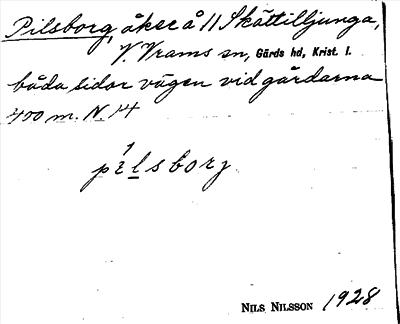 Pilsborg, åker å 11 Skättilljunga,
V. Vrams sn, Gärds hd, Krist. l.
båda sidor vägen vid gårdarna
400 m. N. 14
pilsborg
NILS NILSSON 1928